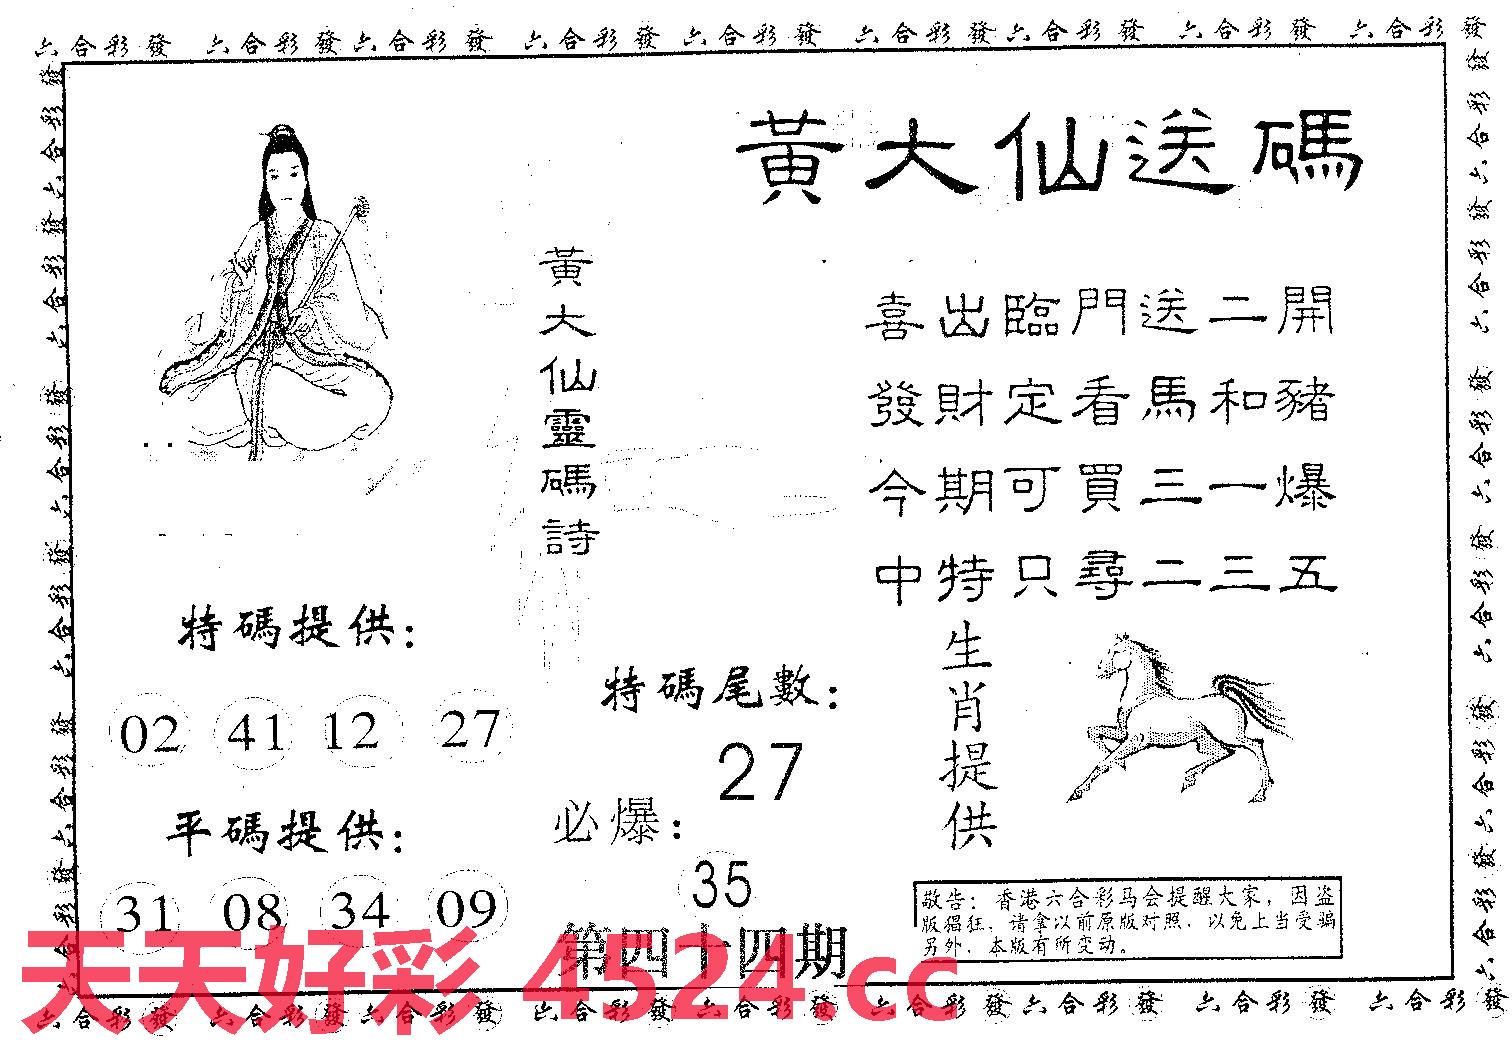 六合彩發 六合彩發六合彩發 六合彩發 六合彩發 六合彩發六合彩發 六合彩發 六合彩發
黃大仙送碼
黃大仙靈碼詩
喜出臨門送二開
發財定看馬和豬
今期可買三一爆
中特只尋二三五
特碼提供：
02 41 12 27
平碼提供：
31 08 34 09
特碼尾數：
27
必爆：
35
第四十四期
生肖提供
敬告：香港六合彩马会提醒大家，因盗
版猖狂，请拿以前原版对照，以免上当受骗
另外，本版有所变动。
天天好彩 4524.cc
六合彩發 六合彩發六合彩發 六合彩發 六合彩發 六合彩發六合彩發 六合彩發 六合彩發